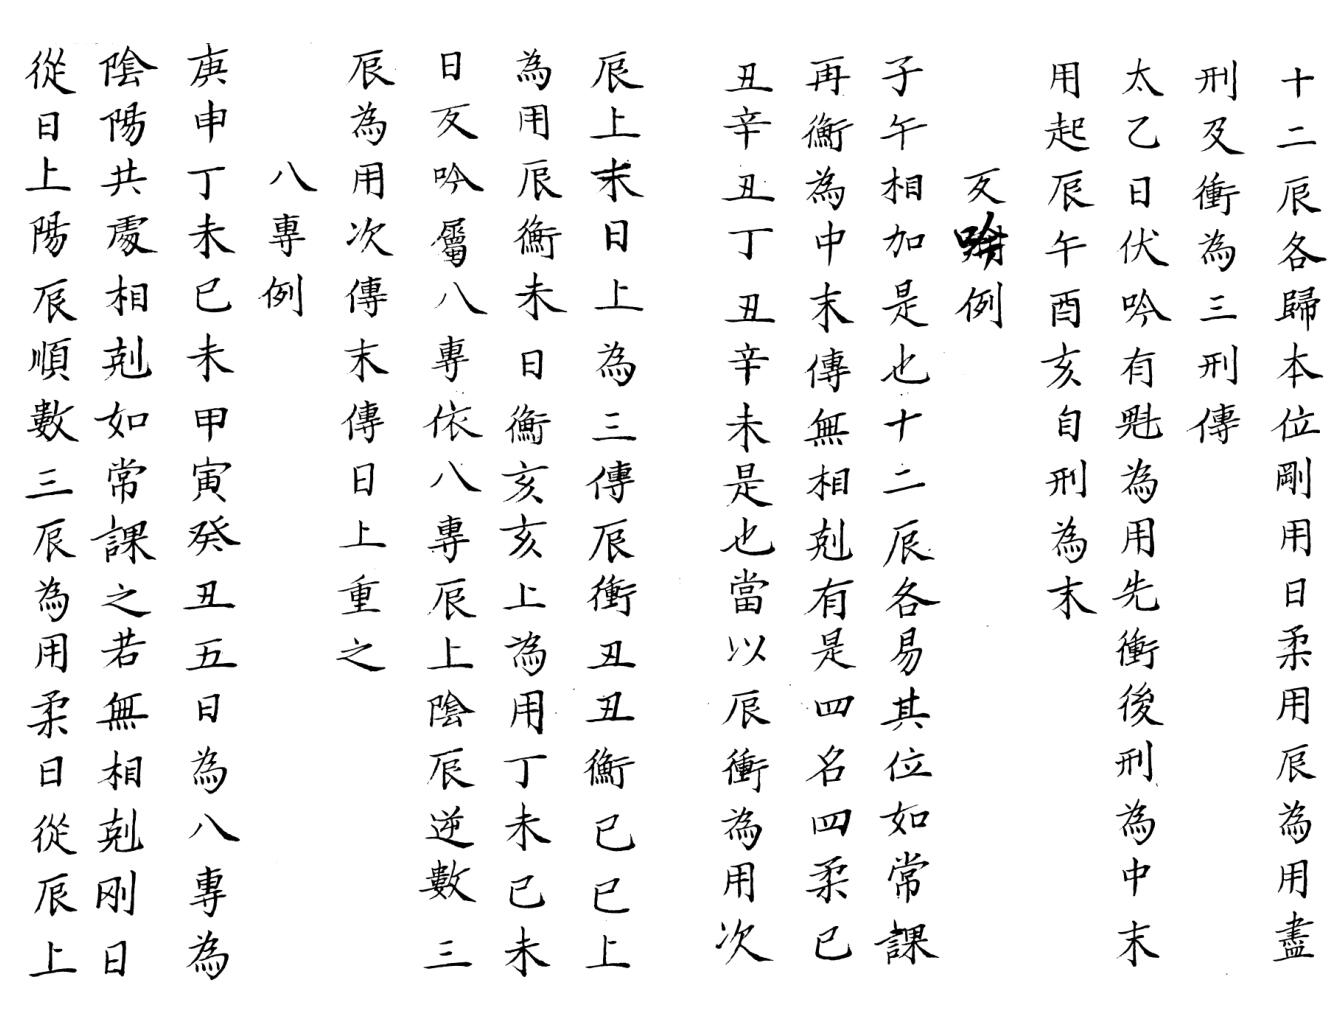 十二辰各歸本位剛用日柔用辰為用盡
刑及衝為三刑傳
太乙日伏吟有尅為用先衝後刑為中末
用起辰午酉亥自刑為末
反吟例
子午相加是也十二辰各易其位如常課
再衝為中末傳無相剋有是四名四柔已
丑辛丑丁丑辛未是也當以辰衝為用次
辰上末日上為三傳辰衝丑丑衝已已上
為用辰衝未日衝亥亥上為用丁未已未
日反吟屬八專依八專辰上陰辰逆數三
辰為用次傳末傳日上重之
八專例
庚申丁未已未甲寅癸丑五日為八專為
陰陽共處相剋如常課之若無相剋剛日
從日上陽辰順數三辰為用柔日從辰上